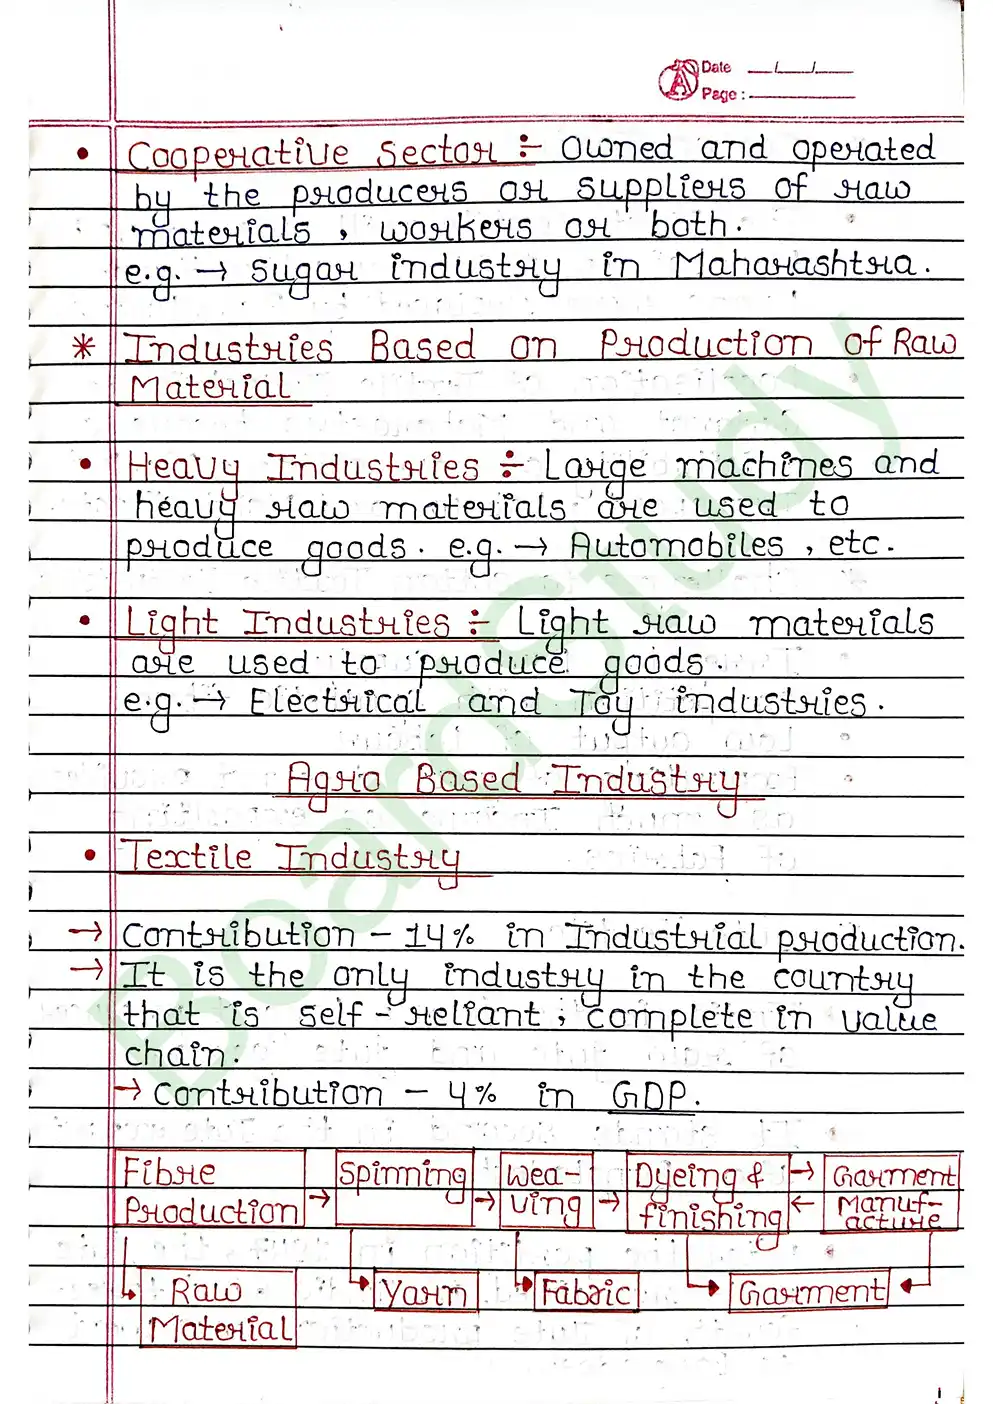 Date __/__/__
Page :
• Cooperative Sector ÷ Owned and operated
by the producers or suppliers of raw
materials , workers or both.
e.g. → Sugar industry in Maharashtra.
* Industries Based on Production of Raw
Material
• Heavy Industries ÷ Large machines and
heavy raw materials are used to
produce goods. e.g. → Automobiles , etc.
• Light Industries ÷ Light raw materials
are used to produce goods.
e.g. → Electrical and Toy industries.
Agro Based Industry
• Textile Industry
→ Contribution – 14% in Industrial production.
→ It is the only industry in the country
that is self-reliant , complete in value
chain.
→ Contribution – 4% in GDP.
Fibre Production → Spinning → Wea-ving → Dyeing & finishing → ← Garment Manuf-acture
Raw Material
Yarn
Fabric
Garment
BoardStudy